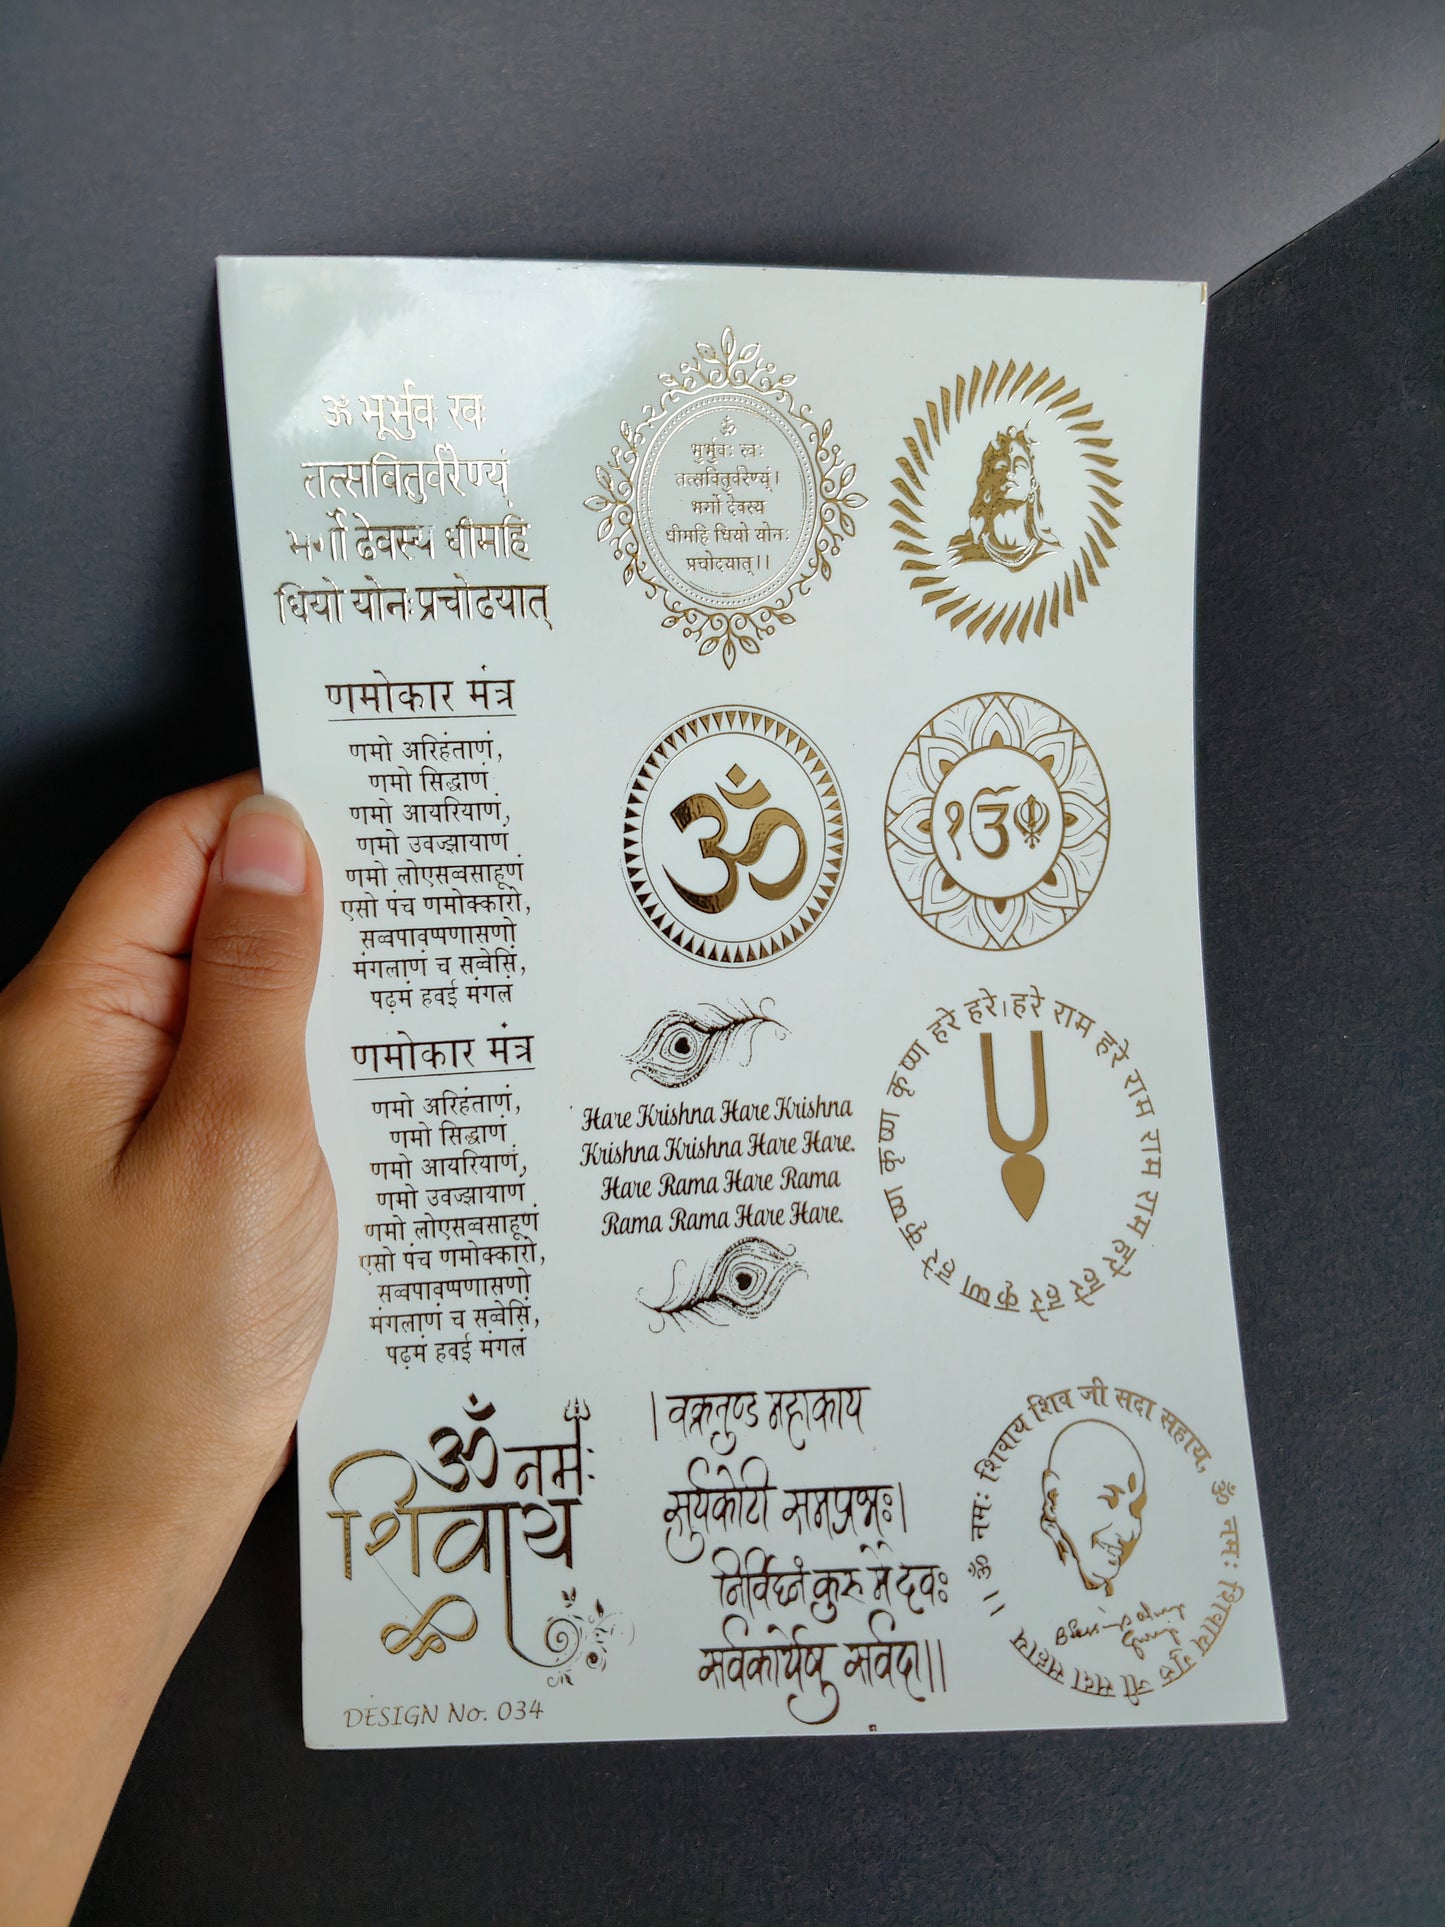 ॐ भूर्भुव स्व
तत्सवितुर्वरेण्यं
भर्गो देवस्य धीमहि
धियो योनःप्रचोदयात्
ॐ
भुर्भुवः स्वः
तत्सवितुर्वरेण्यं।
भर्गो देवस्य
धीमहि धियो योनः
प्रचोदयात्।।
णमोकार मंत्र
णमो अरिहंताणं,
णमो सिद्धाणं
णमो आयरियाणं,
णमो उवज्झायाणं
णमो लोएसव्वसाहूणं
एसो पंच णमोक्कारो,
सव्वपावप्पणासणो
मंगलाणं च सव्वेसिं,
पढ़मं हवई मंगलं
ॐ
१ਓ
णमोकार मंत्र
णमो अरिहंताणं,
णमो सिद्धाणं
णमो आयरियाणं,
णमो उवज्झायाणं
णमो लोएसव्वसाहूणं
एसो पंच णमोक्कारो,
सव्वपावप्पणासणो
मंगलाणं च सव्वेसिं,
पढ़मं हवई मंगलं
Hare Krishna Hare Krishna
Krishna Krishna Hare Hare.
Hare Rama Hare Rama
Rama Rama Hare Hare.
हरे राम हरे राम राम राम हरे हरे हरे कृष्ण हरे कृष्ण कृष्ण कृष्ण हरे हरे।
ॐ नमः
शिवाय
। वक्रतुण्ड महाकाय
सुर्यकोटी समप्रभः।
निर्विघ्नं कुरु मे देवः
सर्वकार्येषु सर्वदा।।
ॐ नमः शिवाय शिव जी सदा सहाय, ॐ नमः शिवाय गुरु जी सदा सहाय ।।
DESIGN No. 034